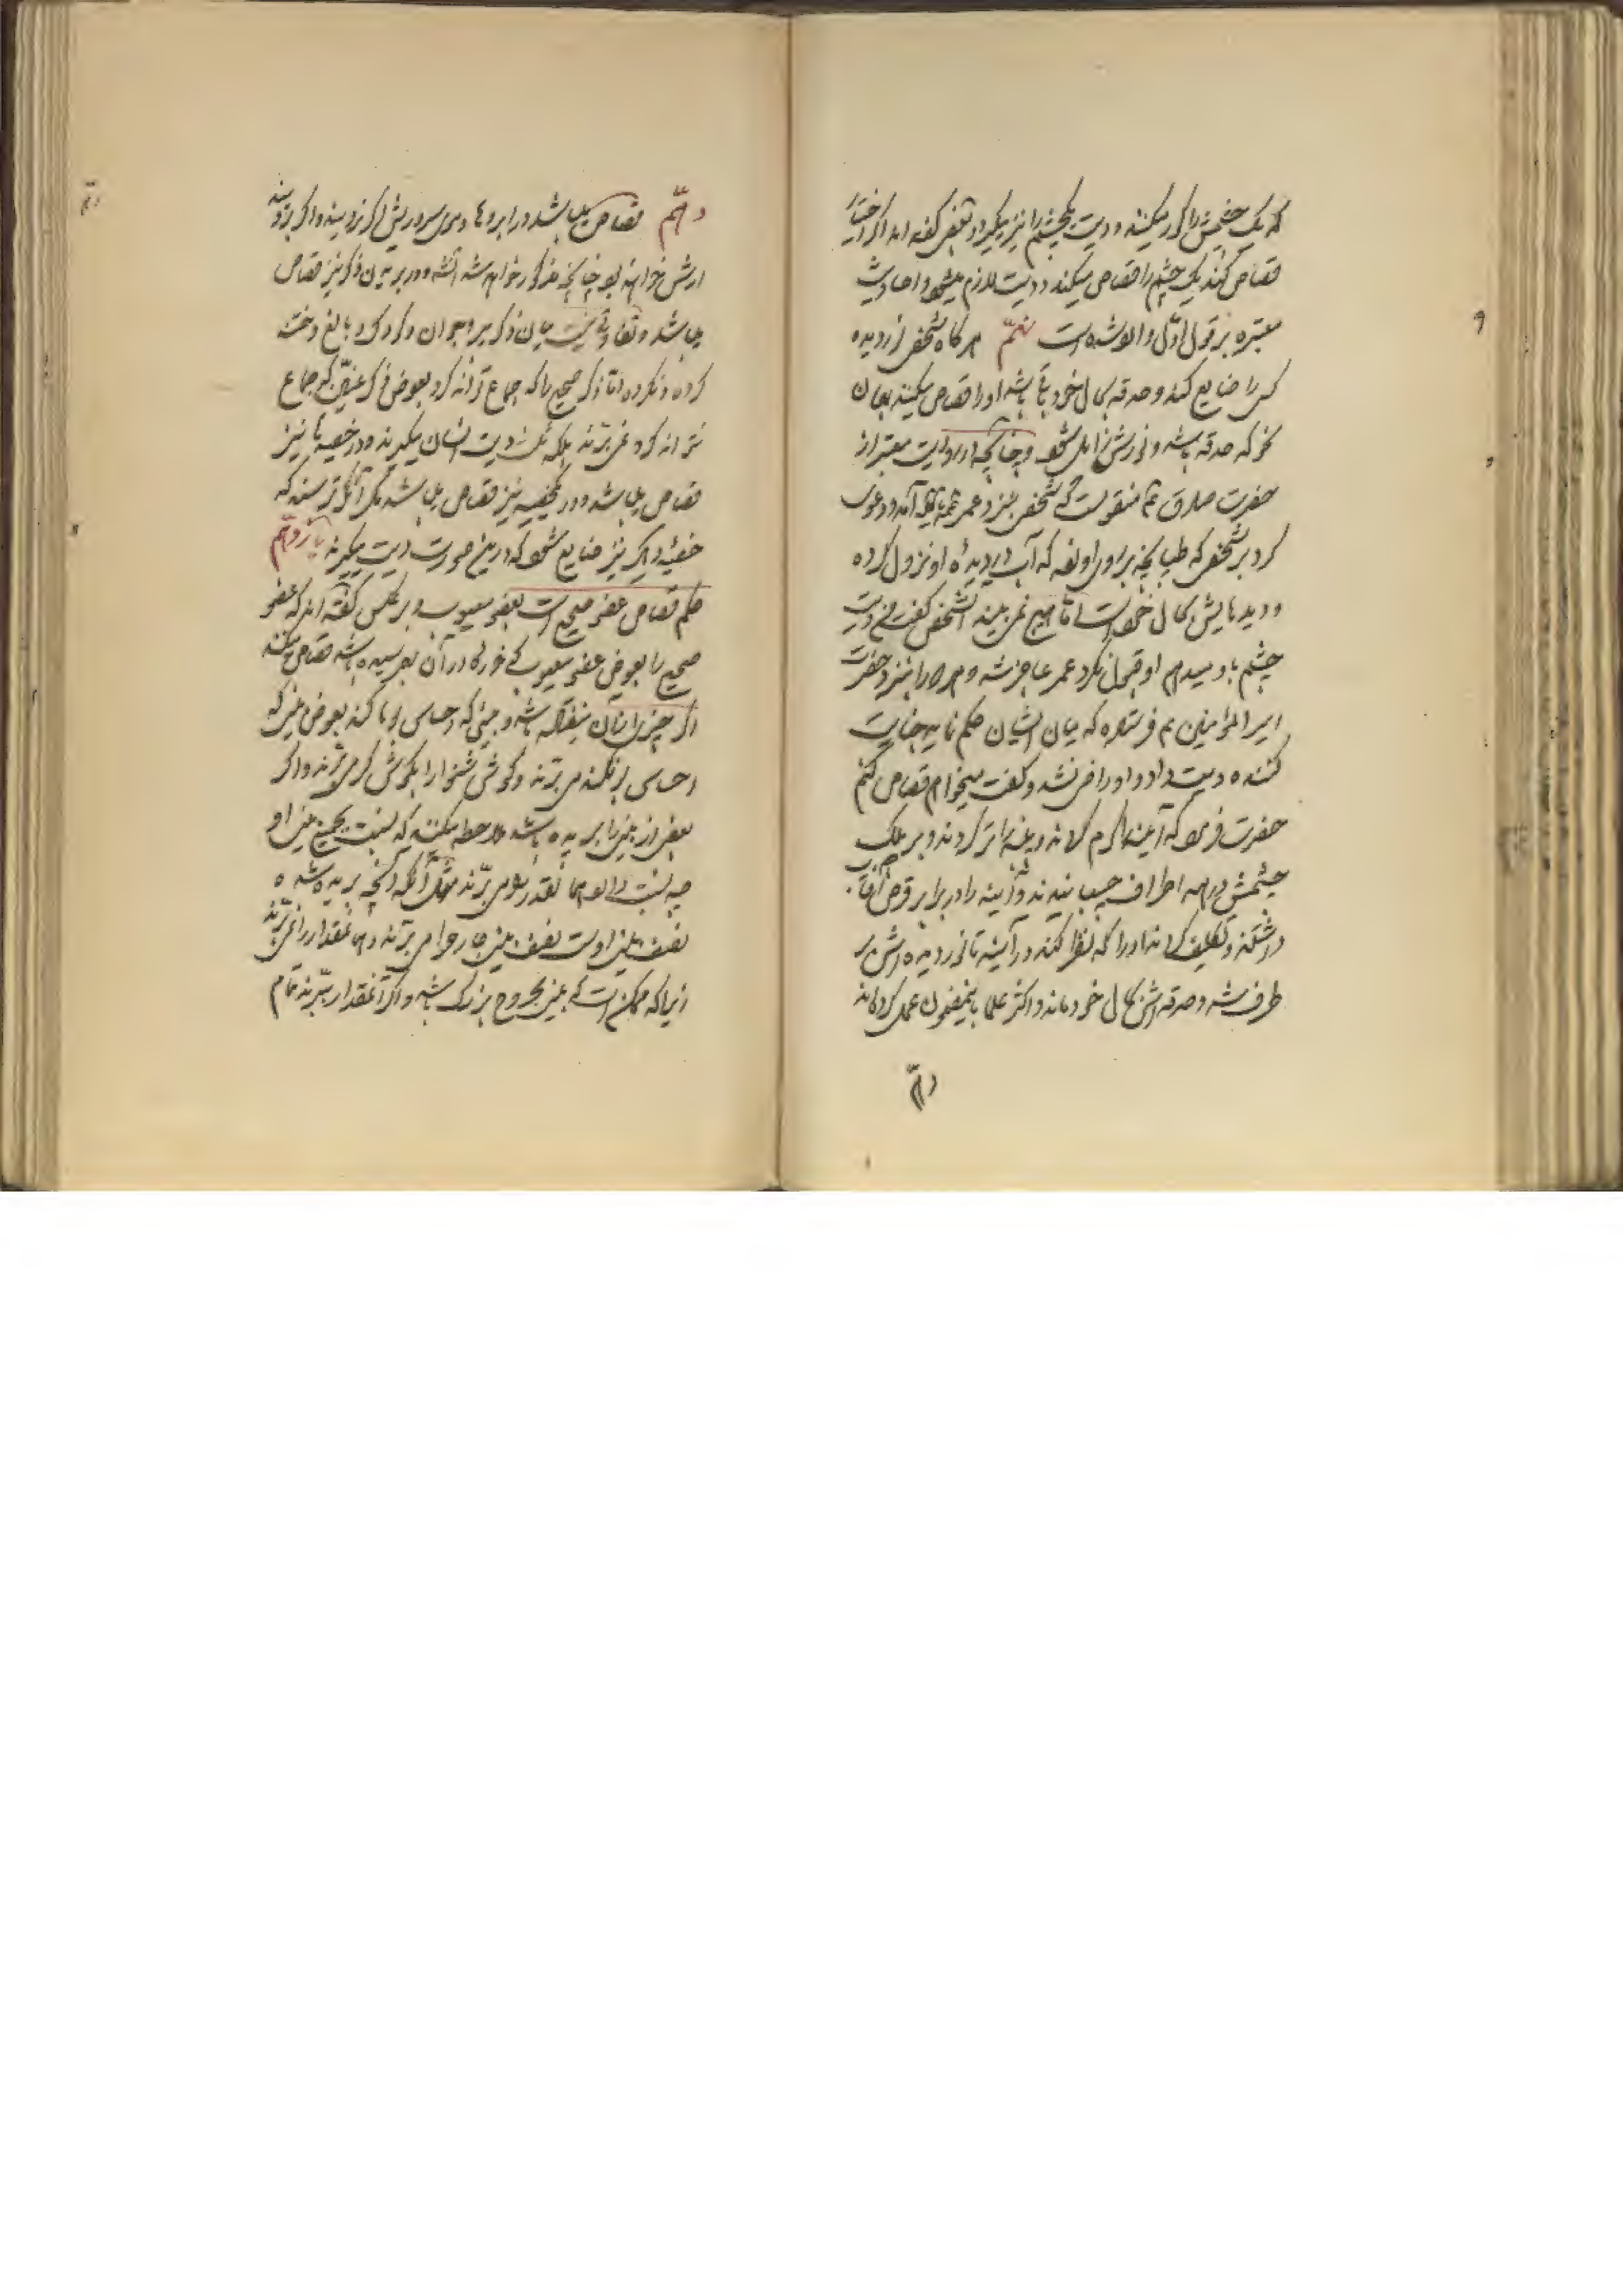 که یک چشمش را کور میکنند و دیت یکچشم را نیز میگیرد و بعضی گفته اند اگر اختیار
قصاص کند یک چشم را قصاص میکند و دیت لازم نمیشود و احادیث
معتبره بر قول اول دال شده است نهم هرگاه شخصی نور دیده
کسی را ضایع کند و حدقه بحال خود باقی باشد او را قصاص میکنند بعنوان
نحوی که حدقه باشد و نورش زایل شود و چنانچه در روایت معتبر از
حضرت صادق ع منقولست که شخصی بنزد عمر آمد و دعوی
کرد بر شخصی که طپانچه بر روی او زده که آب در دیده او نزول کرده
و دیدهایش بحال خود است اما هیچ نمی بیند آنشخص گفت من دیت
چشم باو میدهم او قبول نکرد عمر عاجز شد و همه را بنزد حضرت
امیر المؤمنین ع فرستاد که میان ایشان حکم نماید جنایت
کننده دیت داد و او راضی نشد و گفت میخواهم قصاص کنم
حضرت فرمود که آینه را گرم کردند و پنبه را تر کردند و بر پلک
چشمش و بر همه اطراف چسبانیدند و آینه را در برابر قرص آفتاب
داشتند و تکلیف کردند او را که نظر کند در آینه تا نور دیده اش بر
طرف شد و حدقه اش بحال خود ماند و اکثر علما باینمضمون عمل کرده اند
دهم
دهم قصاص میباشد در ابروها و موی سر و ریش اگر نروید و اگر بروید
ارش خواهد بود چنانچه مذکور خواهد شد انشاء و در بریدن ذکر نیز قصاص
میباشد و تفاوتی نیست میان ذکر پیر و جوان و کودک و بالغ و ختنه
کرده و نکرده اما ذکر صحیح را که جماع تواند کرد بعوض ذکر عنین که جماع
نتواند کرد نمی برند بلکه ثلث دیت انسان میگیرند و در خصیه ها نیز
قصاص میباشد و در یکخصیه نیز قصاص میباشد مگر آنکه ترسند که
خصیه دیگر نیز ضایع شود که در اینصورت دیت میگیرند یازدهم
حکم قصاص عضو صحیح است بعضو معیوب و بر عکس گفته اند که عضو
صحیح را بعوض عضو معیوب که خوره در آن بهم رسیده باشد قصاص میکنند
اگر چیزی از آن نیفتاده باشد و بینی که احساس بوها کند بعوض بینی که
احساس بو نکند می برند و گوش شنوا را بگوش کر می برند و اگر
بعضی از بینی را بریده باشد ملاحظه میکنند که نسبت بجمیع بینی او
چه نسبت دارد همان قدر بینی او می برند مثلا آنکه آنچه بریده شده
نصف بینی اوست نصف بینی جارح را می برند و همان مقدار را نمی برند
زیرا که ممکن است که بینی مجروح بزرگ باشد و اگر آنمقدار ببرند تمام